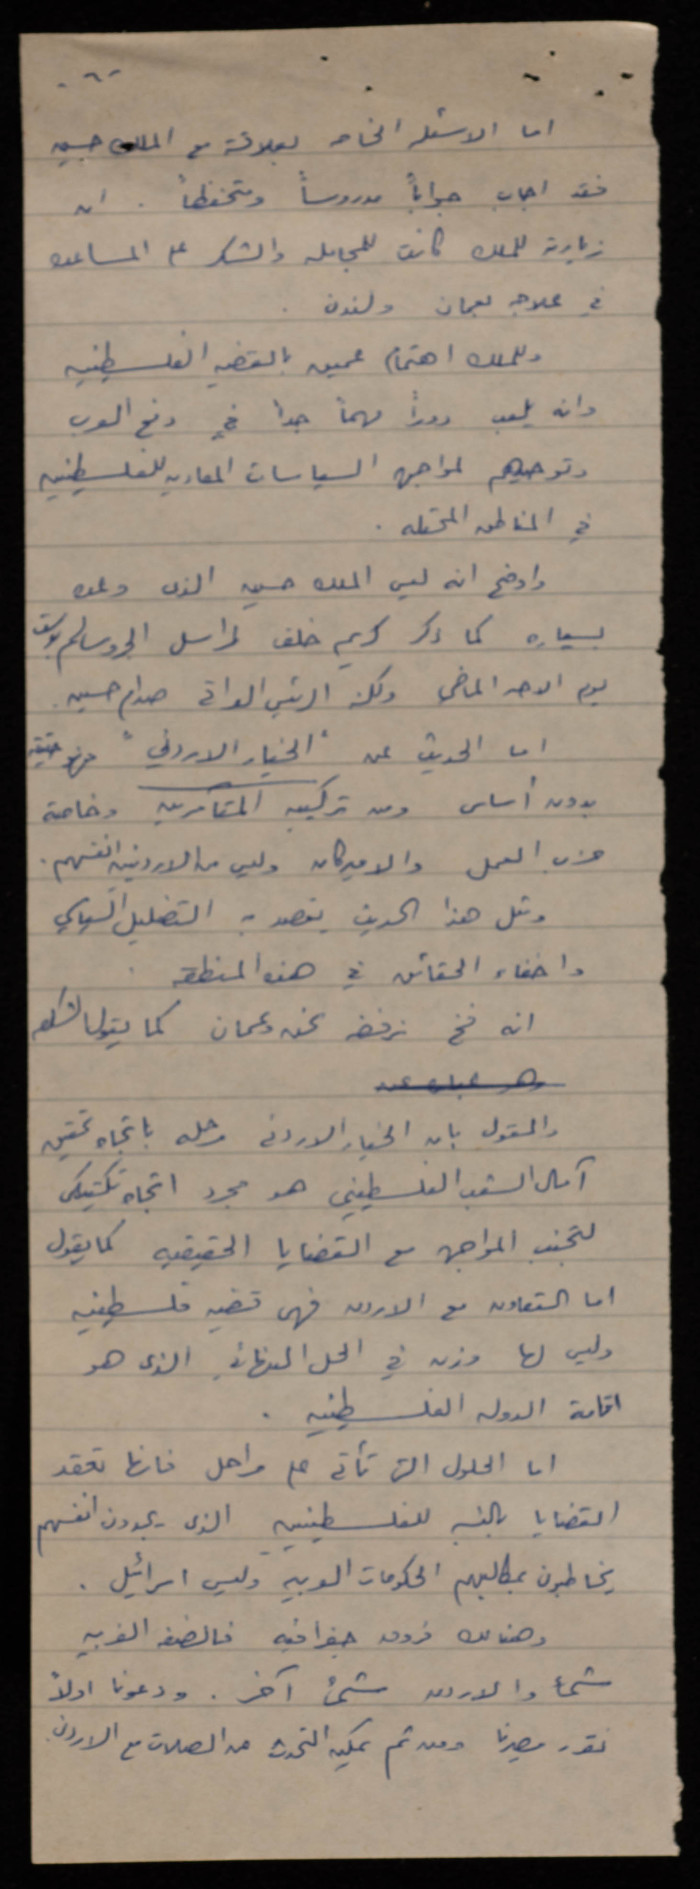 -٦-
اما الاسئله الخاصه بعلاقته مع الملك حسين
فقد اجاب جواباً مدروساً ومتحفظاً . ان
زيارته للملك كانت للمجامله والشكر على المساعده
في علاجه بعمان ولندن .
وللملك اهتمام عميق بالقضيه الفلسطينيه
وانه يلعب دوراً مهماً جداً في دفع العرب
وتوحيدهم لمواجهة السياسات المعاديه للفلسطينيه
في المناطق المحتله .
واوضح انه ليس الملك حسين الذى وعده
بسياره كما ذكر كريم خلف لمراسل الجروسالم بوست
يوم الاحد الماضي ولكنه الرئيس العراقي صدام حسين .
اما الحديث عن "الخيار الاردني" فهو
بدون أساس ومن تركيب المتآمرين وخاصة
حزب العمل والاميركان وليس من الاردنيين انفسهم .
ومثل هذا الحديث يقصد به التضليل السياسي
واخفاء الحقائق في هذه المنطقه .
انه فخ نرفضه نحن وعمان كما يقول الشكعه
وهو عباره عن
والقول بان الخيار الاردني مرحله باتجاه تحقيق
آمال الشعب الفلسطيني هو مجرد اتجاه تكتيكي
لتجنب المواجهه مع القضايا الحقيقيه كما يقول
اما التعاون مع الاردن فهى قضيه فلسطينيه
وليس لها وزن في الحل النهائي الذى هو
اقامة الدوله الفلسطينيه .
اما الحلول التى تأتي على مراحل فانها تعقد
القضايا بالنسبه للفلسطينيين الذى يجدون انفسهم
يخاطبون بمطالبهم الحكومات العربيه وليس اسرائيل .
وهنالك فروق جغرافيه فالضفه الغربيه
شئ والاردن شئ آخر . ودعونا اولاً
نقرر مصيرنا ومن ثم يمكن التحدث عن الصلات مع الاردن .